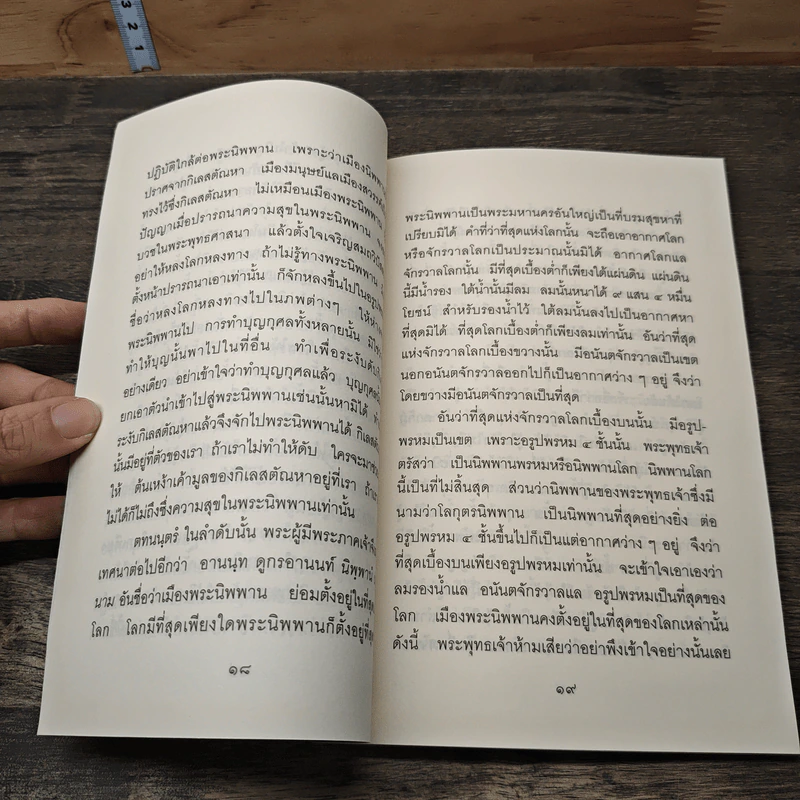 3
2
1
ปฏิบัติใกล้ต่อพระนิพพาน เพราะว่าเมืองนิพพาน
ปราศจากกิเลสตัณหา เมืองมนุษย์แลเมืองสวรรค์
ทรงไว้ซึ่งกิเลสตัณหา ไม่เหมือนเมืองพระนิพพาน
ปัญญาเมื่อปรารถนาความสุขในพระนิพพาน
บวชในพระพุทธศาสนา แล้วตั้งใจเจริญสมถวิปัส
อย่าให้หลงโลกหลงทาง ถ้าไม่รู้ทางพระนิพพาน
ตั้งหน้าปรารถนาเอาเท่านั้น ก็จักหลงขึ้นไปในอรูป
ชื่อว่าหลงโลกหลงทางไปในภพต่างๆ ให้ห่าง
พระนิพพานไป การทำบุญกุศลทั้งหลายนั้น มิใช่
ทำให้บุญนั้นพาไปในที่อื่น ทำเพื่อระงับดับ
อย่างเดียว อย่าเข้าใจว่าทำบุญกุศลแล้ว บุญกุศล
ยกเอาตัวนำเข้าไปสู่พระนิพพานเช่นนั้นหามิได้
ระงับกิเลสตัณหาแล้วจึงจักไปพระนิพพานได้ กิเลส
นั้นมีอยู่ที่ตัวของเรา ถ้าเราไม่ทำให้ดับ ใครจะมา
ให้ ต้นเหง้าเค้ามูลของกิเลสตัณหาอยู่ที่เรา
ไม่ได้ก็ไม่ถึงซึ่งความสุขในพระนิพพานเท่านั้น
ตทนนฺตรํ ในลำดับนั้น พระผู้มีพระภาคเจ้าจึง
เทศนาต่อไปอีกว่า อานนฺท ดูกรอานนท์ นิพฺพานํ
นาม อันชื่อว่าเมืองพระนิพพาน ย่อมตั้งอยู่ในที่สุด
โลก โลกมีที่สุดเพียงใดพระนิพพานก็ตั้งอยู่ที่สุด
๑๘
พระนิพพานเป็นพระมหานครอันใหญ่เป็นที่บรมสุขหาที่
เปรียบมิได้ คำที่ว่าที่สุดแห่งโลกนั้น จะถือเอาอากาศโลก
หรือจักรวาลโลกเป็นประมาณนั้นมิได้ อากาศโลกแล
จักรวาลโลกนั้น มีที่สุดเบื้องต่ำก็เพียงใต้แผ่นดิน แผ่นดิน
นี้มีน้ำรอง ใต้น้ำนั้นมีลม ลมนั้นหนาได้ ๙ แสน ๔ หมื่น
โยชน์ สำหรับรองน้ำไว้ ใต้ลมนั้นลงไปเป็นอากาศหา
ที่สุดมิได้ ที่สุดโลกเบื้องต่ำก็เพียงลมเท่านั้น อันว่าที่สุด
แห่งจักรวาลโลกเบื้องขวางนั้น มีอนันตจักรวาลเป็นเขต
นอกอนันตจักรวาลออกไปก็เป็นอากาศว่าง ๆ อยู่ จึงว่า
โดยขวางมีอนันตจักรวาลเป็นที่สุด
อันว่าที่สุดแห่งจักรวาลโลกเบื้องบนนั้น มีอรูป-
พรหมเป็นเขต เพราะอรูปพรหม ๔ ชั้นนั้น พระพุทธเจ้า
ตรัสว่า เป็นนิพพานพรหมหรือนิพพานโลก นิพพานโลก
นี้เป็นที่ไม่สิ้นสุด ส่วนว่านิพพานของพระพุทธเจ้าซึ่งมี
นามว่าโลกุตรนิพพาน เป็นนิพพานที่สุดอย่างยิ่ง ต่อ
อรูปพรหม ๔ ชั้นขึ้นไปก็เป็นแต่อากาศว่าง ๆ อยู่ จึงว่า
ที่สุดเบื้องบนเพียงอรูปพรหมเท่านั้น จะเข้าใจเอาเองว่า
ลมรองน้ำแล อนันตจักรวาลแล อรูปพรหมเป็นที่สุดของ
โลก เมืองพระนิพพานคงตั้งอยู่ในที่สุดของโลกเหล่านั้น
ดังนี้ พระพุทธเจ้าห้ามเสียว่าอย่าพึงเข้าใจอย่างนั้นเลย
๑๙